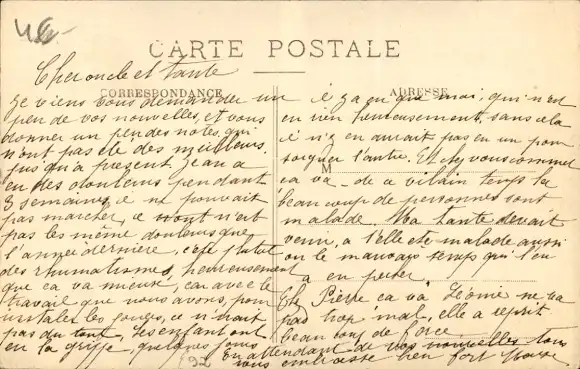 CARTE POSTALE
CORRESPONDANCE
Cher oncle et tante
Je viens vous demander un
peu de vos nouvelles, et vous
donner un peu des notes, qui
n'ont pas ete des meilleurs.
Jusqu'a present Jean a
eu des douleurs pendant
3 semaines, e ne pouvait
pas marcher, ce n'est
pas les même douleurs que
l'annei derniere, c'est plutot
des rhumatismes, heureusement
que ca va mieux, car avec le
travail que nous avons, pour
installer les , ce n'
pas du tout, Les enfant ont
eu la grippe, quelques jours
ADRESSE
il y a eu que moi, qui n'est
eu rien heureusement, sans cela
il n'y en aurait pas eu un pour
soigner l'autre. Et chez vous comment
M
ca va de ce vilain temps la
beaucoup de personnes sont
malade. Ma tante devait
venir, a t'elle ete malade aussi
ou le mauvais temps qui l'en
a
Et Pierre ca va, Léonie ne va
pas trop mal, elle a reprit
beaucoup de force
en attendant de vos nouvelles tous
vous embrasse bien fort
192